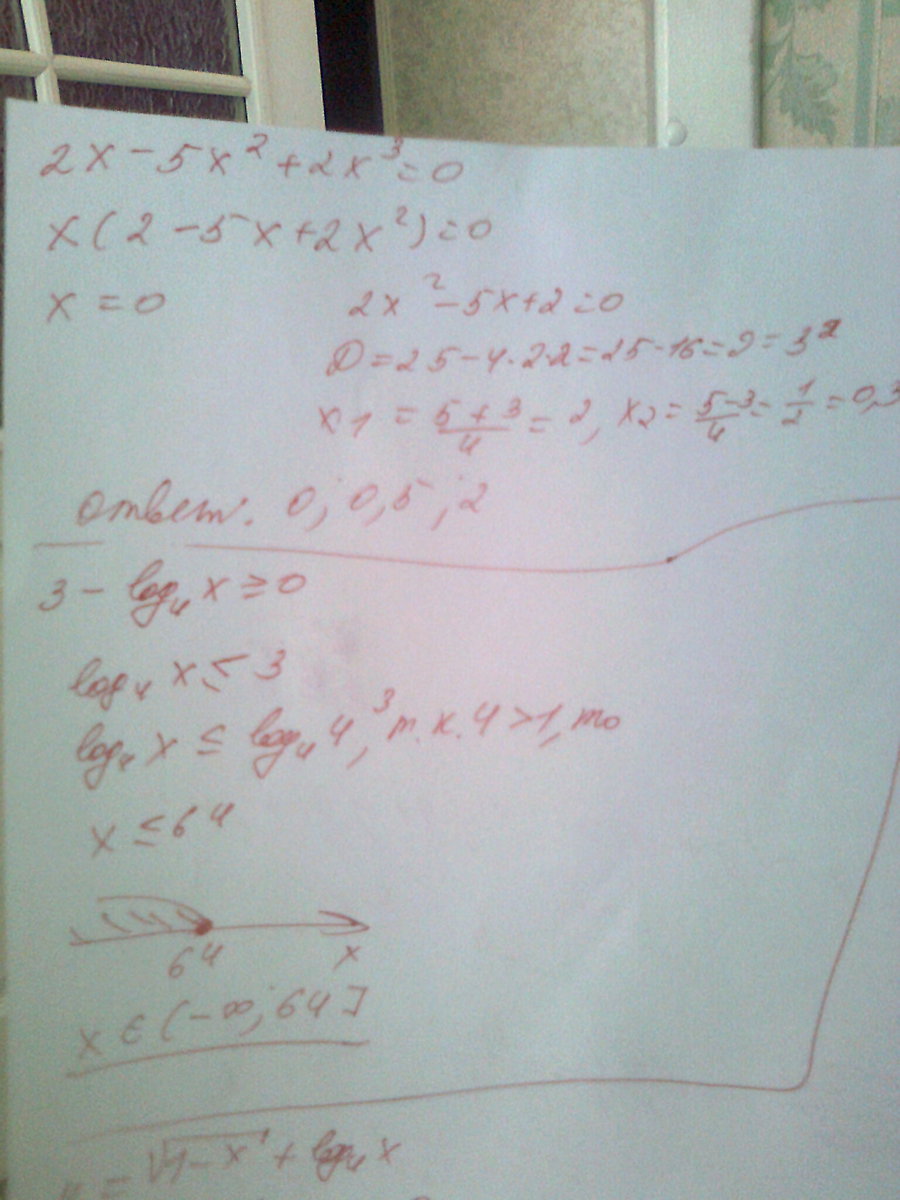 2x - 5x² + 2x³ = 0
x(2 - 5x + 2x²) = 0
x = 0
2x² - 5x + 2 = 0
D = 25 - 4·2·2 = 25 - 16 = 9 = 3²
x₁ = (5 + 3)/4 = 2, x₂ = (5-3)/4 = 1/2 = 0,
Ответ. 0; 0,5; 2
3 - log₄ x ≥ 0
log₄ x ≤ 3
log₄ x ≤ log₄ 4³, т.к. 4 > 1, то
x ≤ 64
64 x
x ∈ (-∞; 64]
= √(1-x) + log₄ x